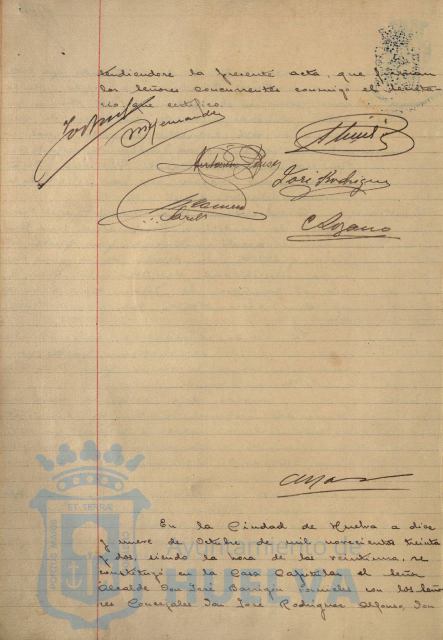 tendiendose la presente acta, que firman
los señores concurrentes conmigo el Secreta-
rio que certifico.
M Hernandez
José Rodriguez
C Lozano
En la Ciudad de Huelva a diez
y nueve de Octubre de mil novecientos treinta
y dos, siendo la hora de las veintiuna, se
constituyó en la Casa Capitular el Señor
Alcalde Don José Barrigón con los Seño-
res Concejales Don José Rodriguez Alfonso, Don
PORTUS MARIS ET TERRAE
Ayuntamiento de
HUELVA